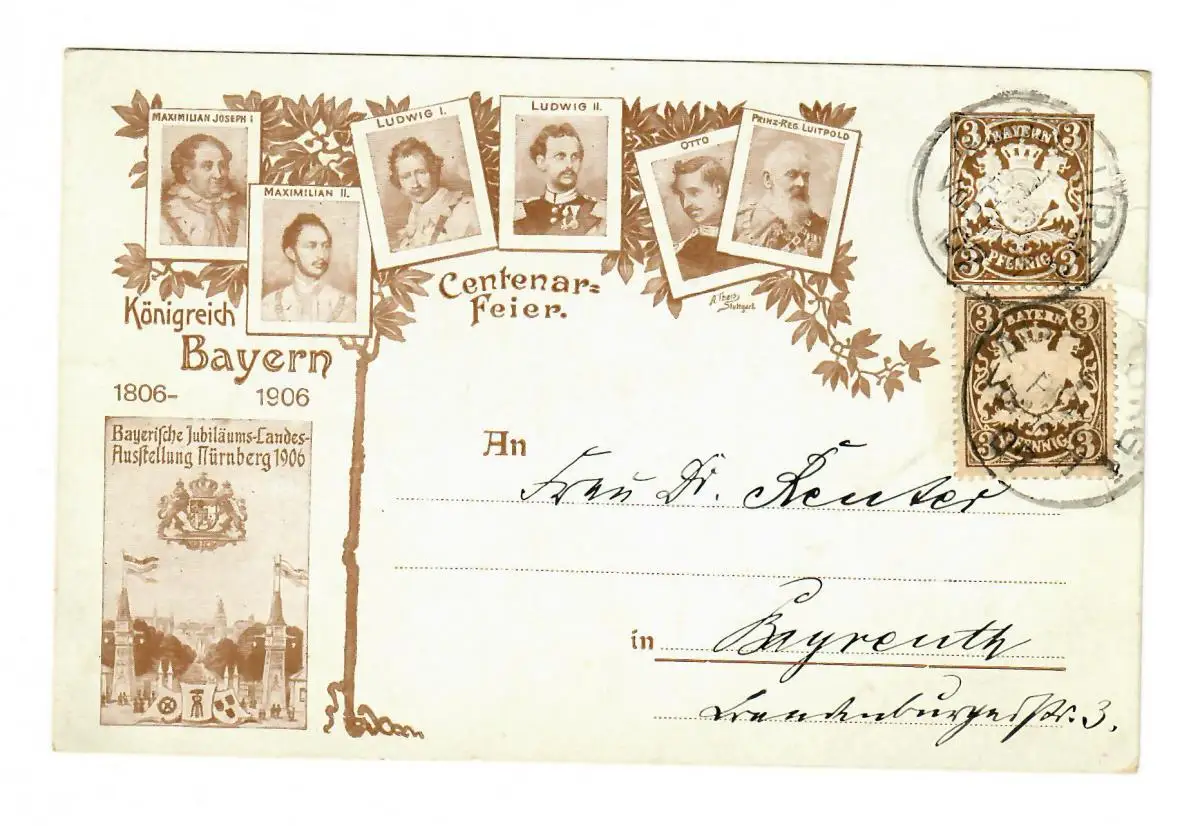 MAXIMILIAN JOSEPH I
MAXIMILIAN II.
LUDWIG I.
LUDWIG II.
OTTO
PRINZ-REG. LUITPOLD
Stuttgart
Centenar=
Feier.
Königreich
Bayern
1806- 1906
Bayerische Jubiläums-Landes-
Ausstellung Nürnberg 1906
3 BAYERN 3
3 PFENNIG 3
3 BAYERN 3
3 PFENNIG 3
An
Frau Dr. Reuter
in Bayreuth
Brandenburgerstr. 3.